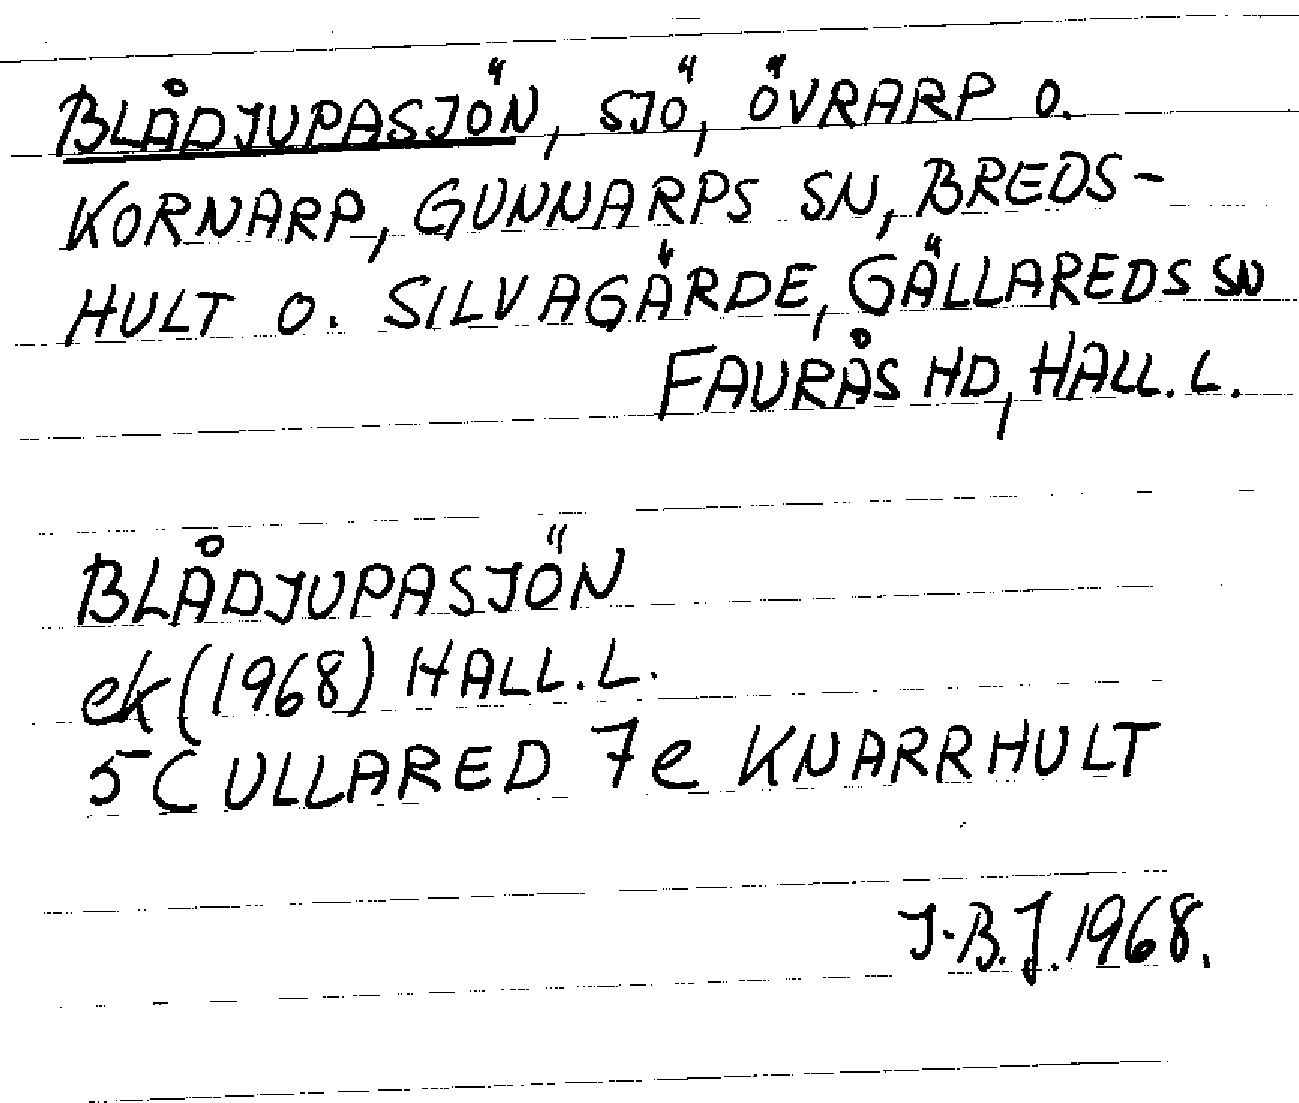 BLÅDJUPASJÖN, SJÖ, ÖVRARP O.
KORNARP, GUNNARPS SN, BREDS-
HULT O. SILVAGÄRDE, GÄLLAREDS SN
FAURÅS HD, HALL. L.
BLÅDJUPASJÖN
ek (1968) HALL. L.
5C ULLARED 7e KNARRHULT
J-B.J. 1968.